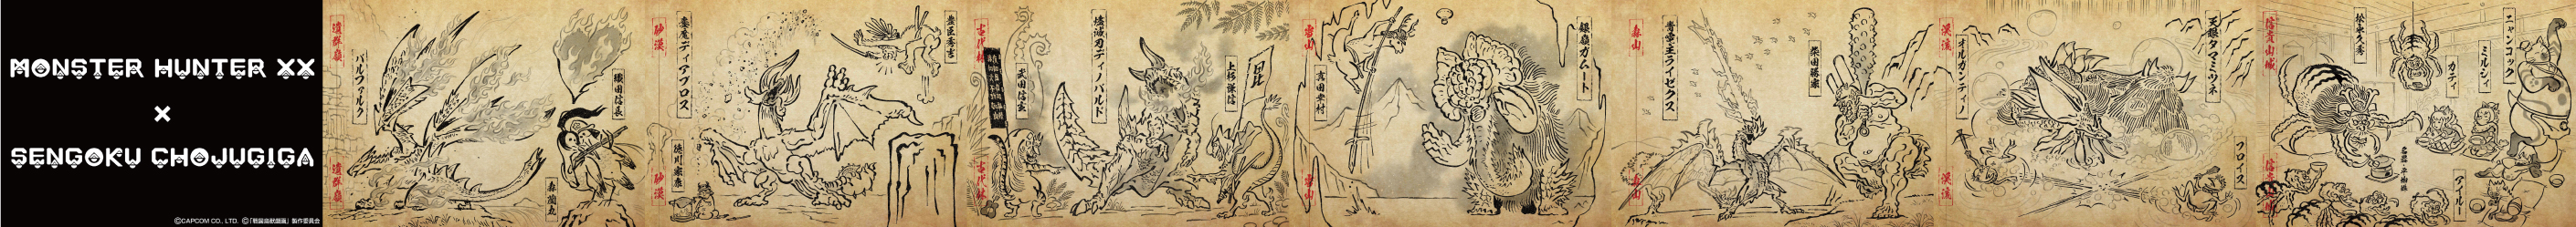 MONSTER HUNTER XX
×
SENGOKU CHOJUGIGA
©CAPCOM CO., LTD. ©「戦国鳥獣戯画」製作委員会
遺群嶺
バルファルク
織田信長
森蘭丸
遺群嶺
砂漠
鏖魔ディアブロス
豊臣秀吉
徳川家康
砂漠
古代林
武田信玄
燼滅刃ディノバルド
上杉謙信
毘
古代林
雪山
真田幸村
銀嶺ガムート
雪山
森山
青電主ライゼクス
柴田勝家
森山
渓流
オルガンティノ
天眼タマミツネ
フロイス
渓流
信貴山城
松永久秀
カティ
ミルシィ
ニャンコック
アイルー
名器 平蜘蛛